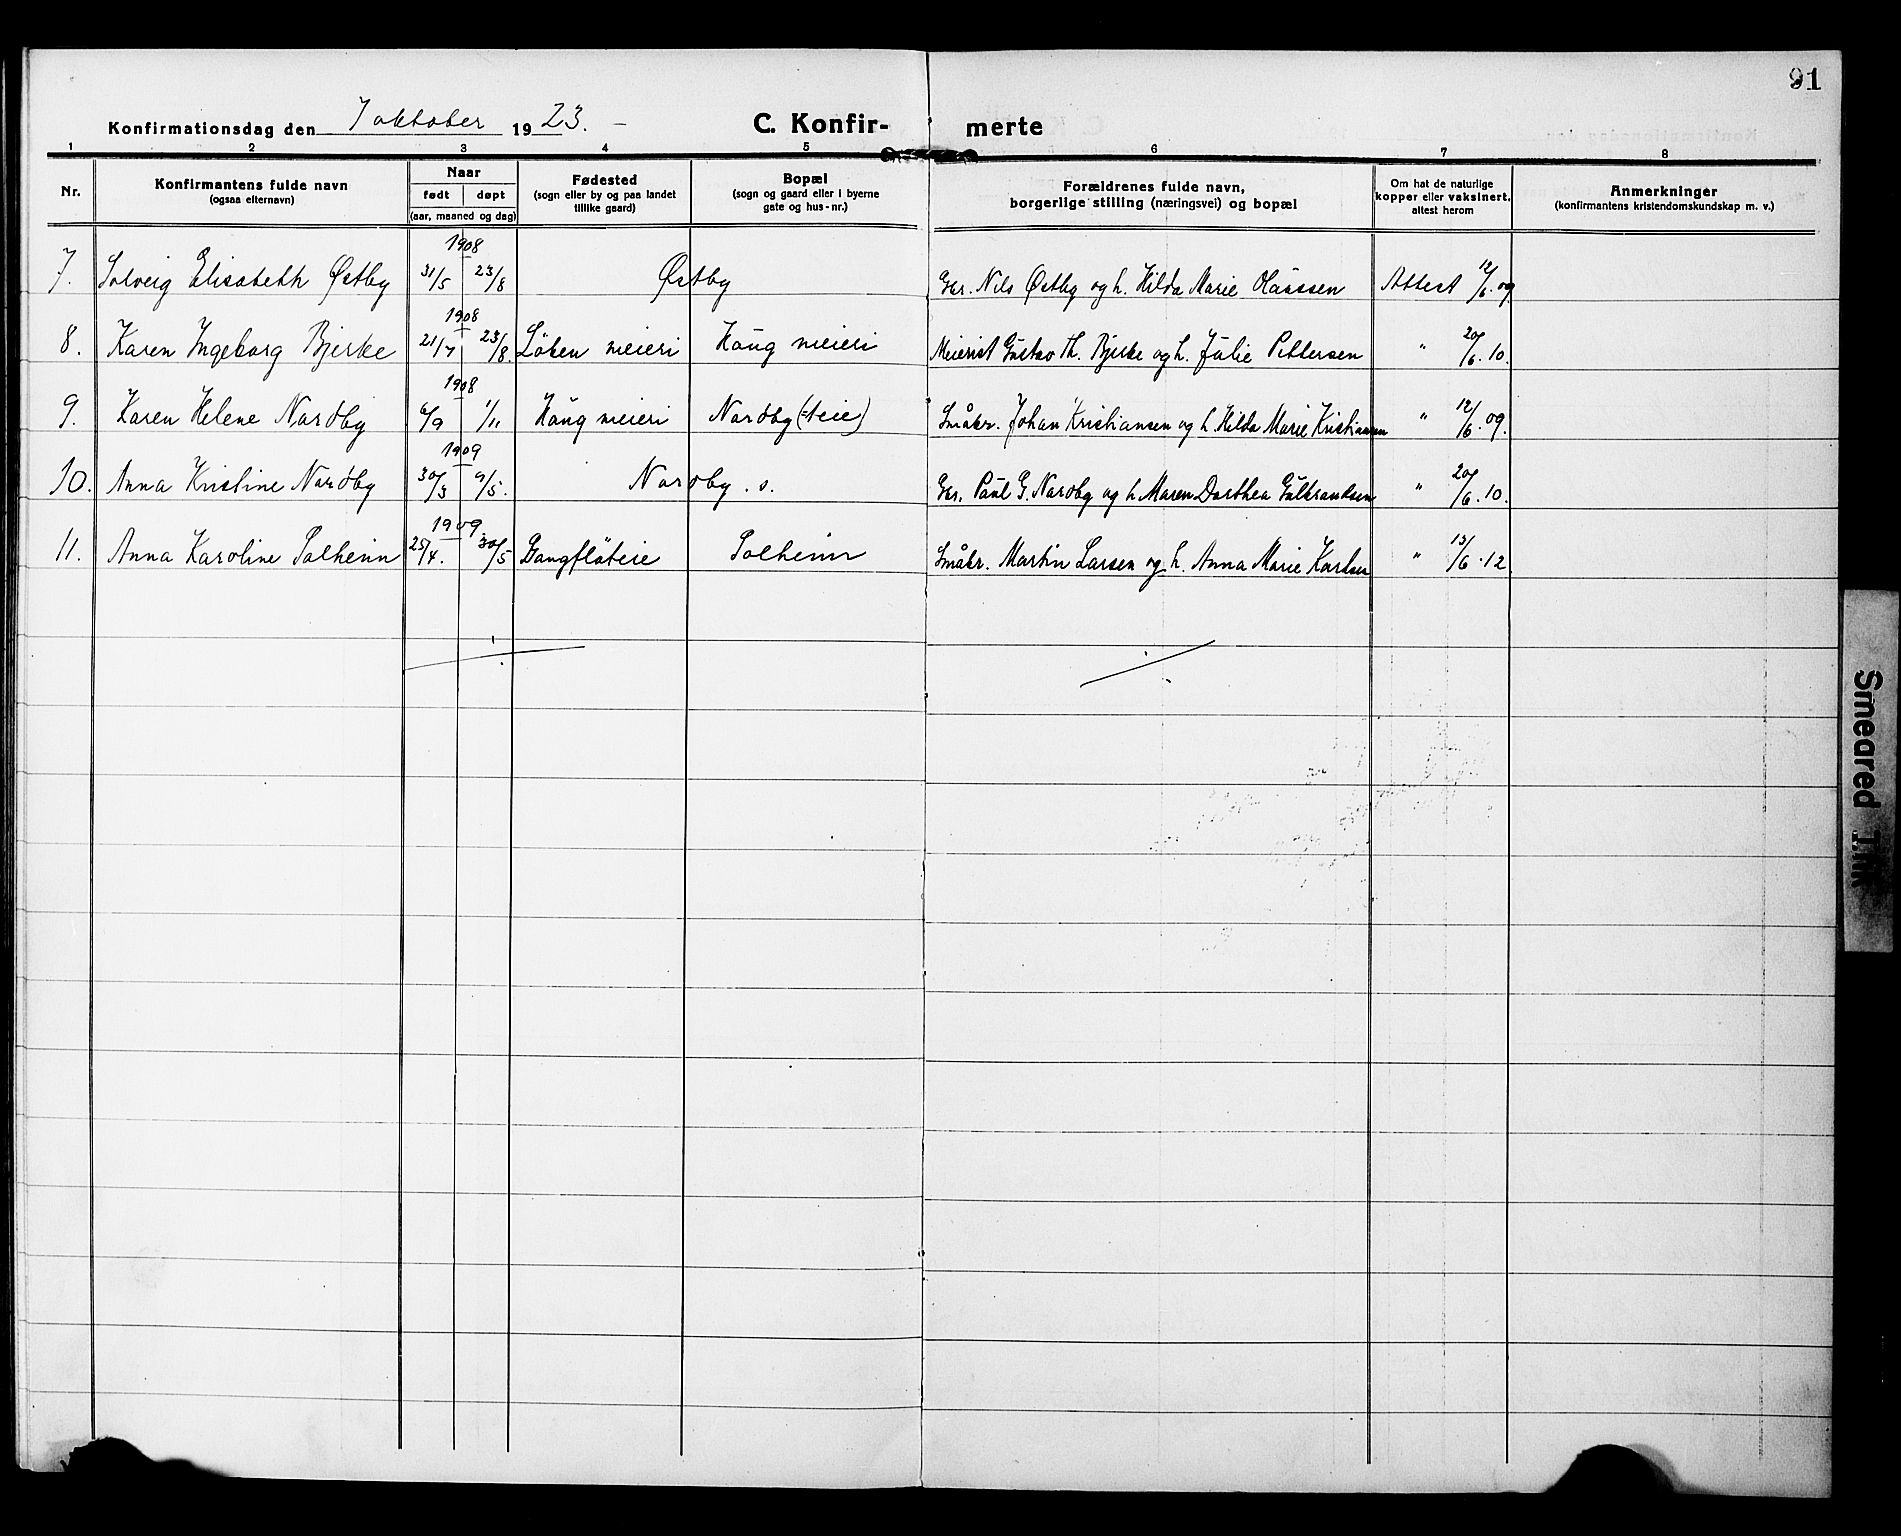 91
Konfirmationsdag den 7 oktober 1923. –
C. Konfir-merte
1 2 3 4 5 6 7 8
Nr. Konfirmantens fulde navn (ogsaa efternavn) Naar født døpt (aar, maaned og dag) Fødested (sogn eller by og paa landet tillike gaard) Bopæl (sogn og gaard eller i byerne gate og hus-nr.) Forældrenes fulde navn, borgerlige stilling (næringsvei) og bopæl Om hat de naturlige kopper eller vaksinert, attest herom Anmerkninger (konfirmantens kristendomskundskap m. v.)
1908
7. Solveig Elisabeth Østby 31/5 23/8 Østby Gbr. Nils Østby og h. Hilda Marie Olaussen Attest 12/6.09
1908
8. Karen Ingeborg Bjerke 21/7 23/8. Løken meieri Haug meieri Meierist Gustav Th. Bjerke og h. Julie Pettersen " 20/6.10.
1908
9. Karen Helene Nordby 6/9 1/11 Haug meieri Nordby (-teie) Småbr. Johan Kristiansen og h Hilda Marie Kristiansen " 12/6.09.
1909
10. Anna Kristine Nordby 30/3 9/5. Nordby . s. Gbr. Paul G. Nordby og h Maren Dorthea Gulbrandsen " 20/6.10.
1909.
11. Anna Karoline Solheim 25/4. 30/5 Solheim Småbr. Martin Larsen og h. Anna Marie Karlsen " 13/6.12
Smeared Ink